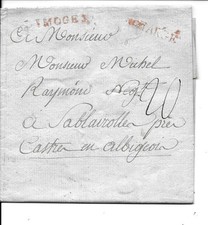 LIMOGES
A Monsieur
Monsieur Michel
Raymond Neg.t 20
a Sablairolles près
Castres en Albigeois